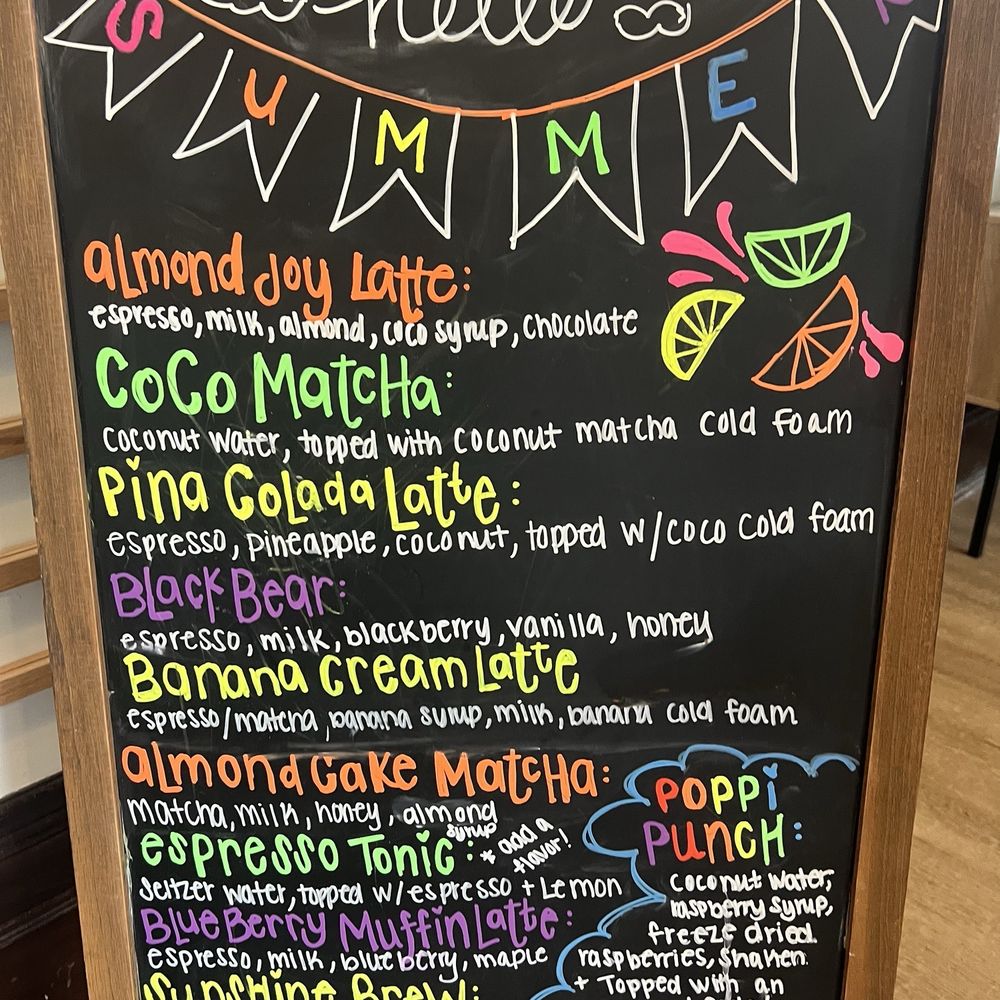 hello
SUMMER
almond Joy Latte:
espresso, milk, almond, coco syrup, chocolate
CoCo MatcHa:
coconut water, topped with coconut matcha cold foam
Pina Colada Latte:
espresso, pineapple, coconut, topped w/coco cold foam
Black Bear:
espresso, milk, blackberry, vanilla, honey
Banana Cream Latte
espresso/matcha, banana syrup, milk, banana cold foam
almond Cake MatcHa:
matcha, milk, honey, almond
syrup
espresso Tonic:
+ add a
flavor!
seltzer water, topped w/espresso + Lemon
BlueBerry Muffin Latte:
espresso, milk, blueberry, maple
Sunshine Brew:
POPPi
PUNCH:
coconut water,
raspberry syrup,
freeze dried
raspberries, shaken
+ Topped with an